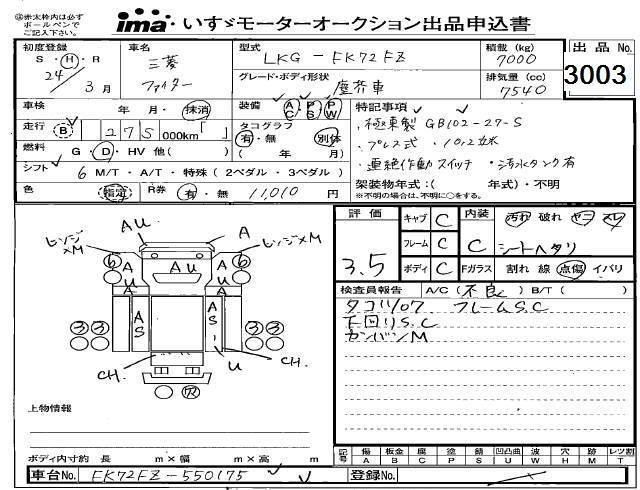 ㊟赤太枠内は必ず
ボールペンで
ご記入下さい。
ima いすゞモーターオークション出品申込書
出品No.
3003
初度登録
S・H・R
24年 3月
車名
三菱
ファイター
型式
LKG-FK72FZ
グレード・ボディ形状
塵芥車
積載(kg)
7000
排気量(cc)
7540
車検 年・月・抹消
装備 AC・PS・PW
特記事項
・極東製 GB102-27-S
・プレス式 ・10,2立米
・連続作動スイッチ ・汚水タンク有
走行 (B) 275 000km「 」
タコグラフ
有・無 別体
( 年 月)
燃料 G・D・HV 他( )
シフト 6 M/T・A/T・特殊(2ペダル・3ペダル)
色 指定 R券 有・無 11,010円
架装物年式:( 年式)・不明
※不明の場合は、不明に○をする。
評価
3.5
キャブ C
フレーム C
ボディ C
内装
C
汚れ 破れ ヤニ スレ
シートヘタリ
Fガラス 割れ 線 点傷 イバリ
検査員報告 A/C(不良)B/T( )
タコリ107 フレームS.C
下回りS.C
カンバンM
ヒンジ×M
AU
A
ヒンジ×M
6 A U
AU
A U 6
3 3
A S
A S
3 3
CH.
U
CH.
穴
上物情報
ボディ内寸約 長 m×幅 m×高 m
記号
傷 板金 座 塗 錆 凹凸曲 波 穴 跡 レツ割
A B C P S U W H M T
車台No. FK72FZ-550175
登録No.